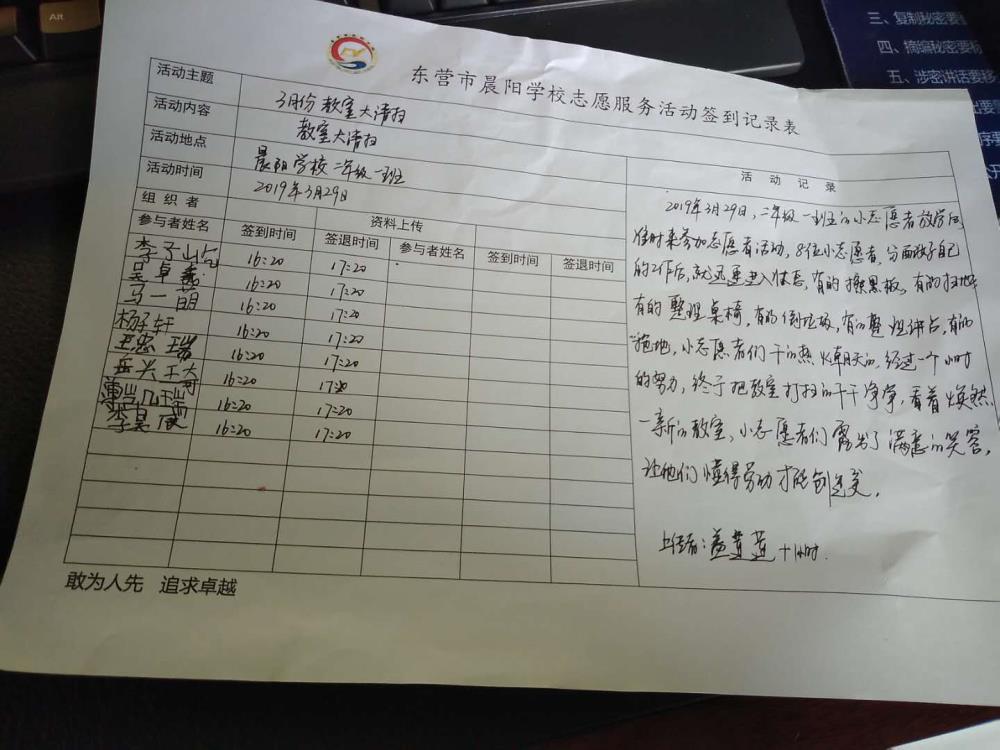 Alt
三、复制秘密要
四、摘编秘密要
五、涉密讲话要
东营市晨阳学校志愿服务活动签到记录表
活动主题 3月份教室大清扫
活动内容 教室大清扫
活动地点 晨阳学校二年级一班
活动时间 2019年3月29日
组织者 资料上传
参与者姓名 签到时间 签退时间 参与者姓名 签到时间 签退时间
李子山 16:20 17:20
吴卓 16:20 17:20
马一萌 16:20 17:20
杨子轩 16:20 17:20
王忠瑞 16:20 17:20
岳兴 16:20 17:20
16:20 17:20
李昊 16:20 17:20
活动记录
2019年3月29日,二年级一班的小志愿者放学后
准时来参加志愿者活动,8位小志愿者,分配好自己
的工作后,就迅速进入状态,有的擦黑板,有的扫地,
有的整理桌椅,有的倒垃圾,有的整理讲台,有的
拖地,小志愿者们干的热火朝天的,经过一个小时
的努力,终于把教室打扫的干干净净,看着焕然
一新的教室,小志愿者们露出了满意的笑容,
让他们懂得劳动才能创造美。
上传者: 十小时.
敢为人先 追求卓越